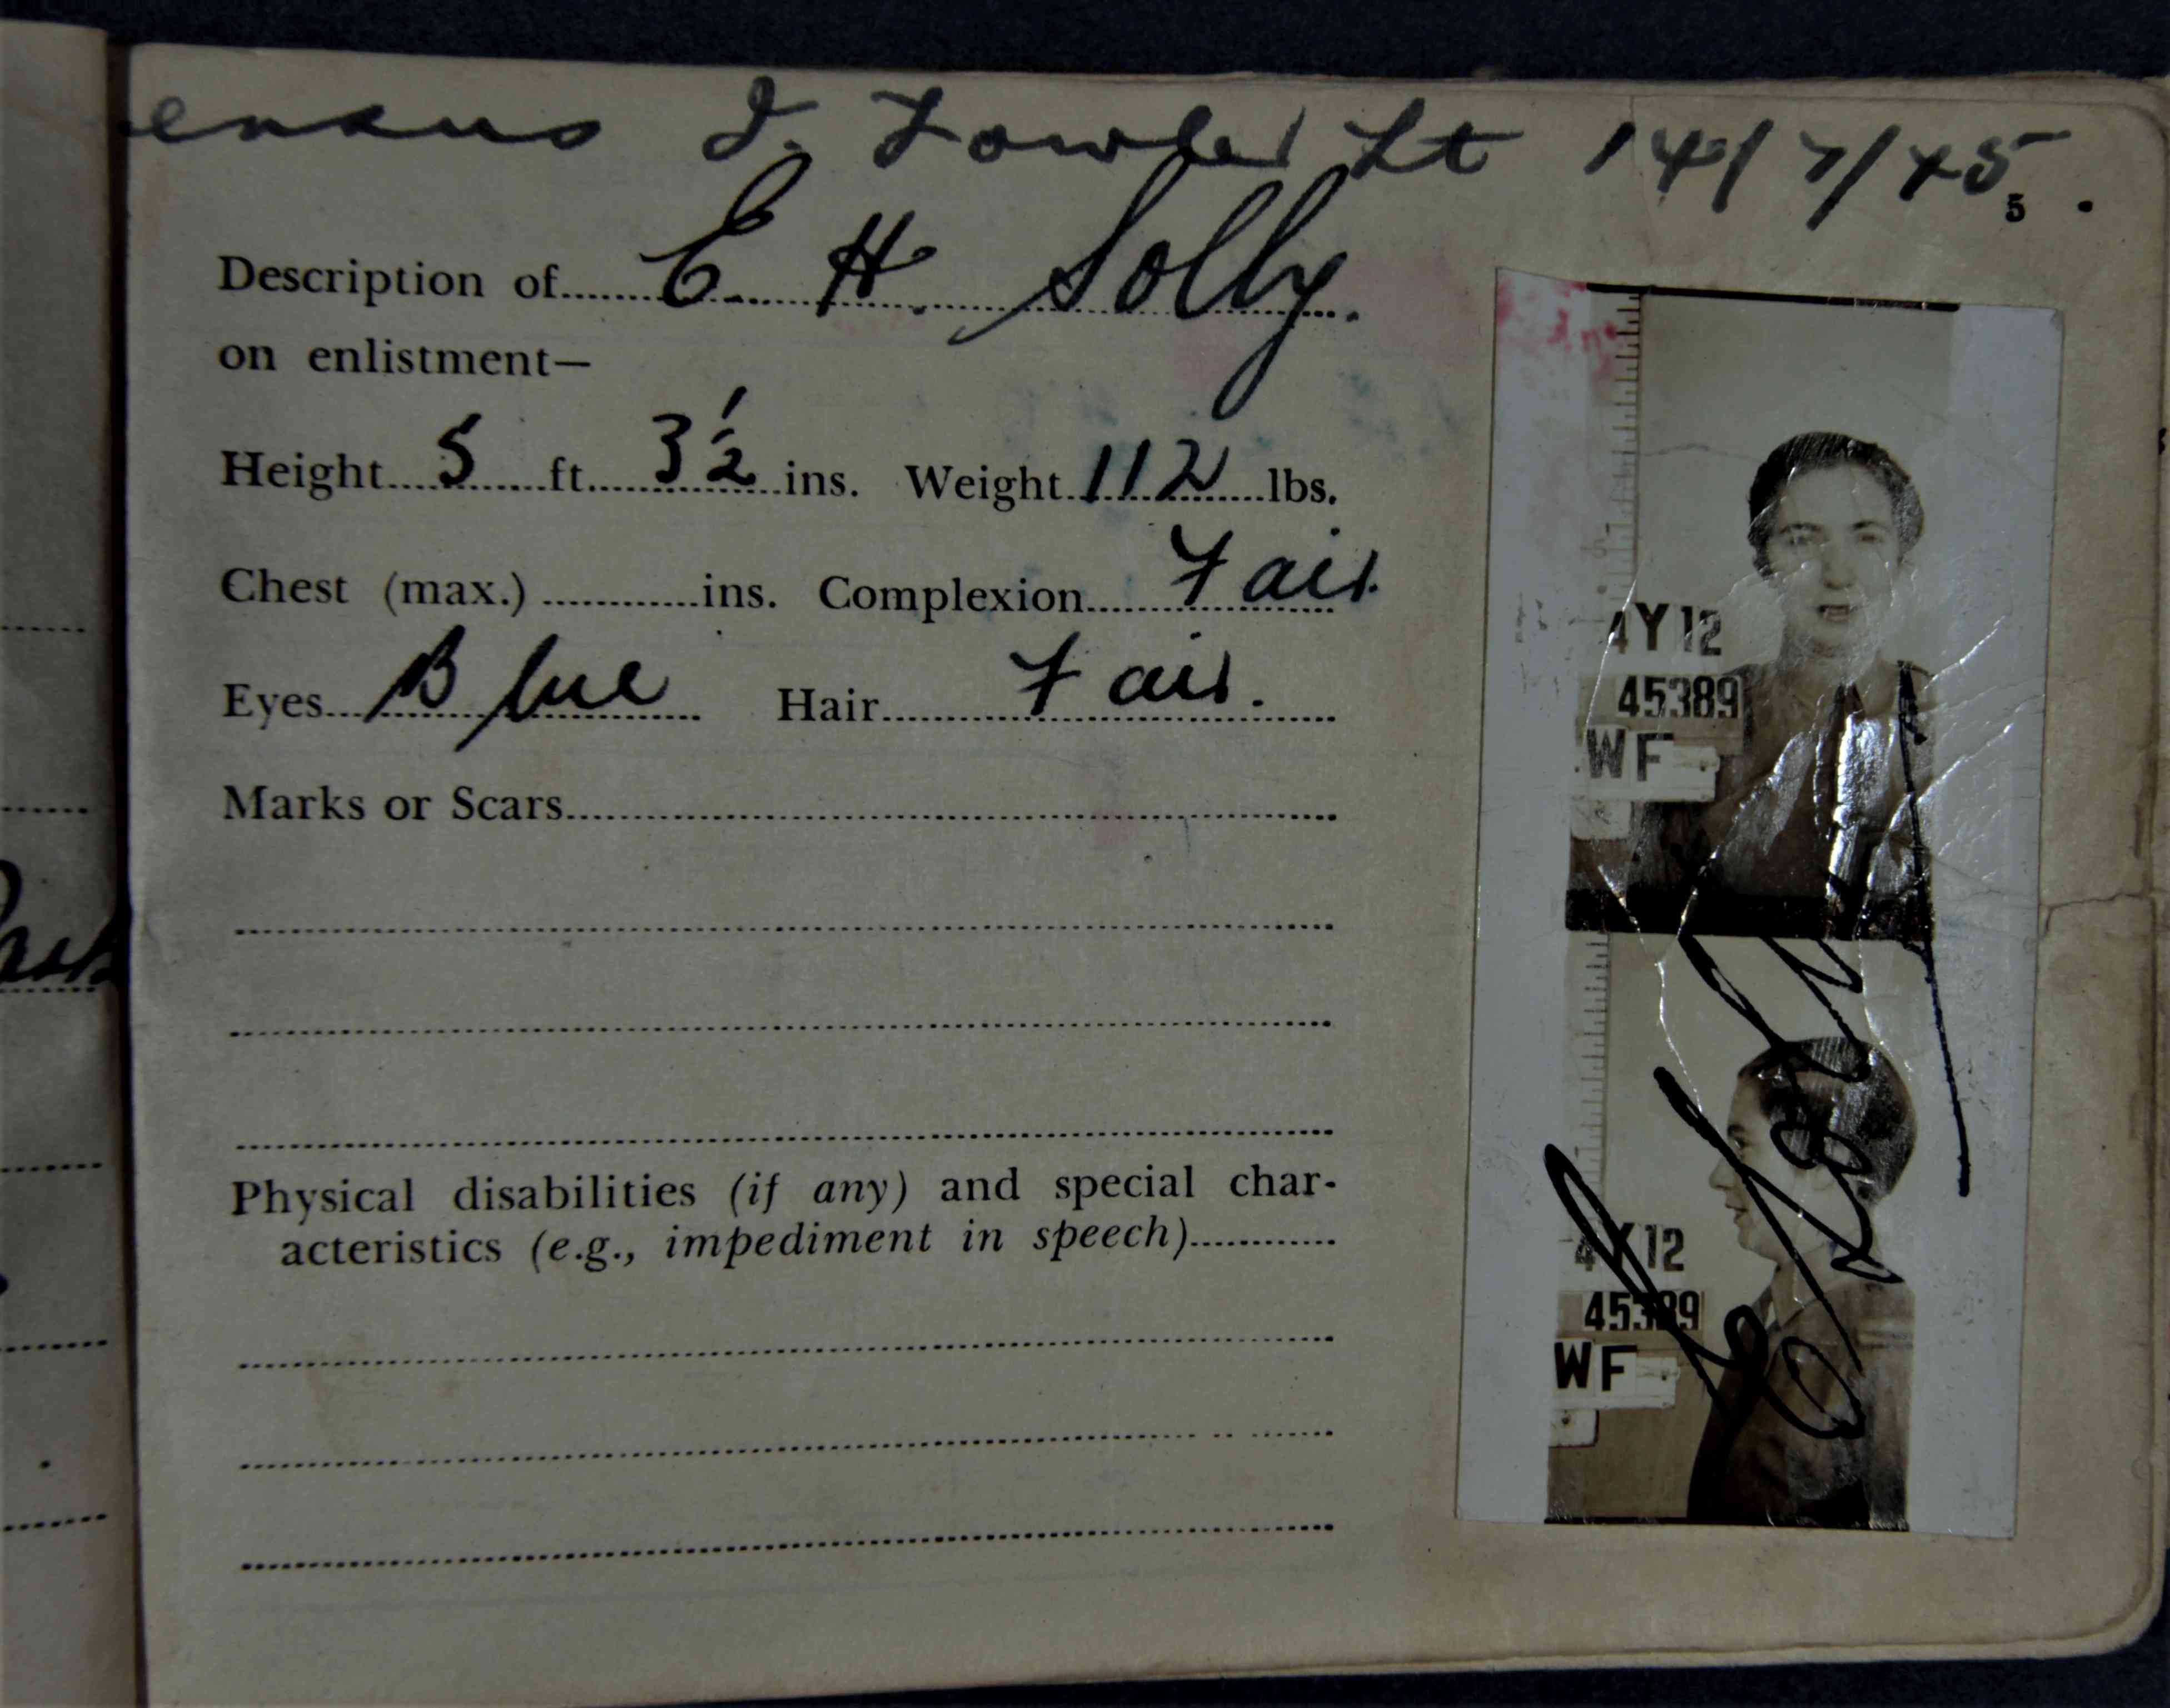 ensus I. Fowler Lt 14/7/45.
5
Description of E H Solly.
on enlistment—
Height 5 ft. 3½ ins. Weight 112 lbs.
Chest (max.) ins. Complexion Fair.
Eyes Blue Hair Fair.
Marks or Scars
Physical disabilities (if any) and special char-
acteristics (e.g., impediment in speech)
4Y12
45389
WF
4Y12
45389
WF
E Solly